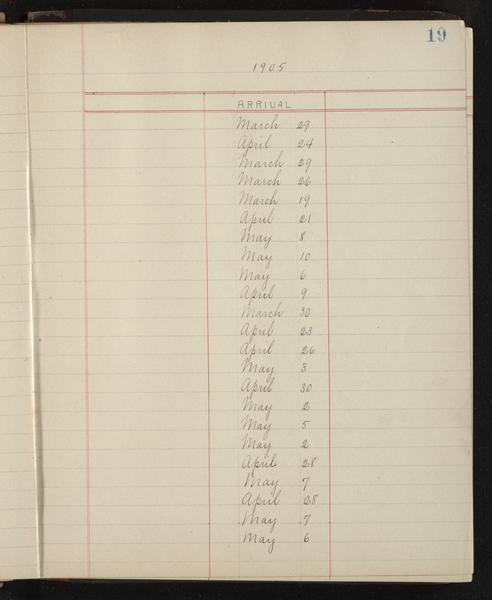 19
1905
ARRIVAL
March 29
April 24
March 29
March 26
March 19
April 21
May 8
May 10
May 6
April 9
March 30
April 23
April 26
May 3
April 30
May 2
May 5
May 2
April 28
May 7
April 28
May 7
May 6